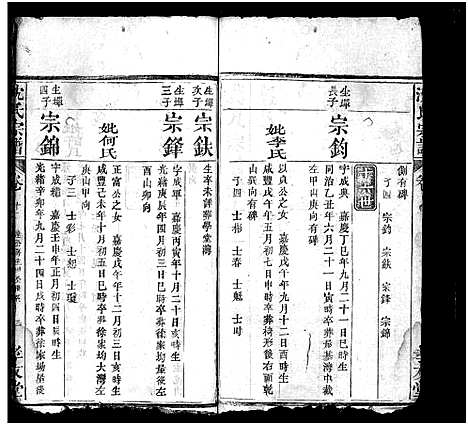 側有碑
子四 宗鈞 宗鈇 宗鋒 宗錦
生墀
長子
宗鈞
字成興 嘉慶丁巳年九月二十一日寅時生
同治乙丑年六月二十一日戌時卒葬
左甲山庚向有碑
妣李氏
以貞公之女 嘉慶戊午年九月十二日酉時生
子四 士彬 士春 士魁 士時
生墀
次子
宗鈇
生卒未詳葬學堂灣
生墀
三子
宗鋒
字成軍 嘉慶丙寅年十月二十日亥時生
咸豐庚辰年四月初三日巳時卒葬徐家場
酉山卯向
妣何氏
正富公之女 嘉慶戊午年十二月初三日亥時生
咸豐己未年十月初五日巳時卒葬徐家場大灣左
庚山甲向
子三 士彩 士恕 士瓊
生墀
四子
宗錦
字成補 嘉慶壬申年正月初四日戌時生
光緒辛卯年九月二十四日亥時卒葬徐家場屋後
沈氏宗譜
孝友堂